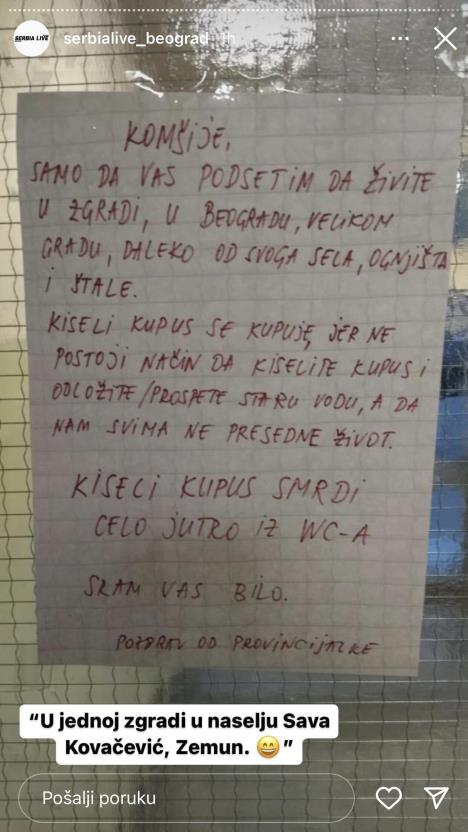 SERBIA LIVE
serbialive_beograd 1h
KOMŠIJE,
SAMO DA VAS PODSETIM DA ŽIVITE
U ZGRADI, U BEOGRADU, VELIKOM
GRADU, DALEKO OD SVOGA SELA, OGNJIŠTA
I ŠTALE.
KISELI KUPUS SE KUPUJE, JER NE
POSTOJI NAČIN DA KISELITE KUPUS I
ODLOŽITE/PROSPETE STARU VODU, A DA
NAM SVIMA NE PRESEDNE ŽIVOT.
KISELI KUPUS SMRDI
CELO JUTRO IZ WC-A
SRAM VAS BILO.
POZDRAV OD PROVINCIJALKE
“U jednoj zgradi u naselju Sava
Kovačević, Zemun. 😄”
Pošalji poruku